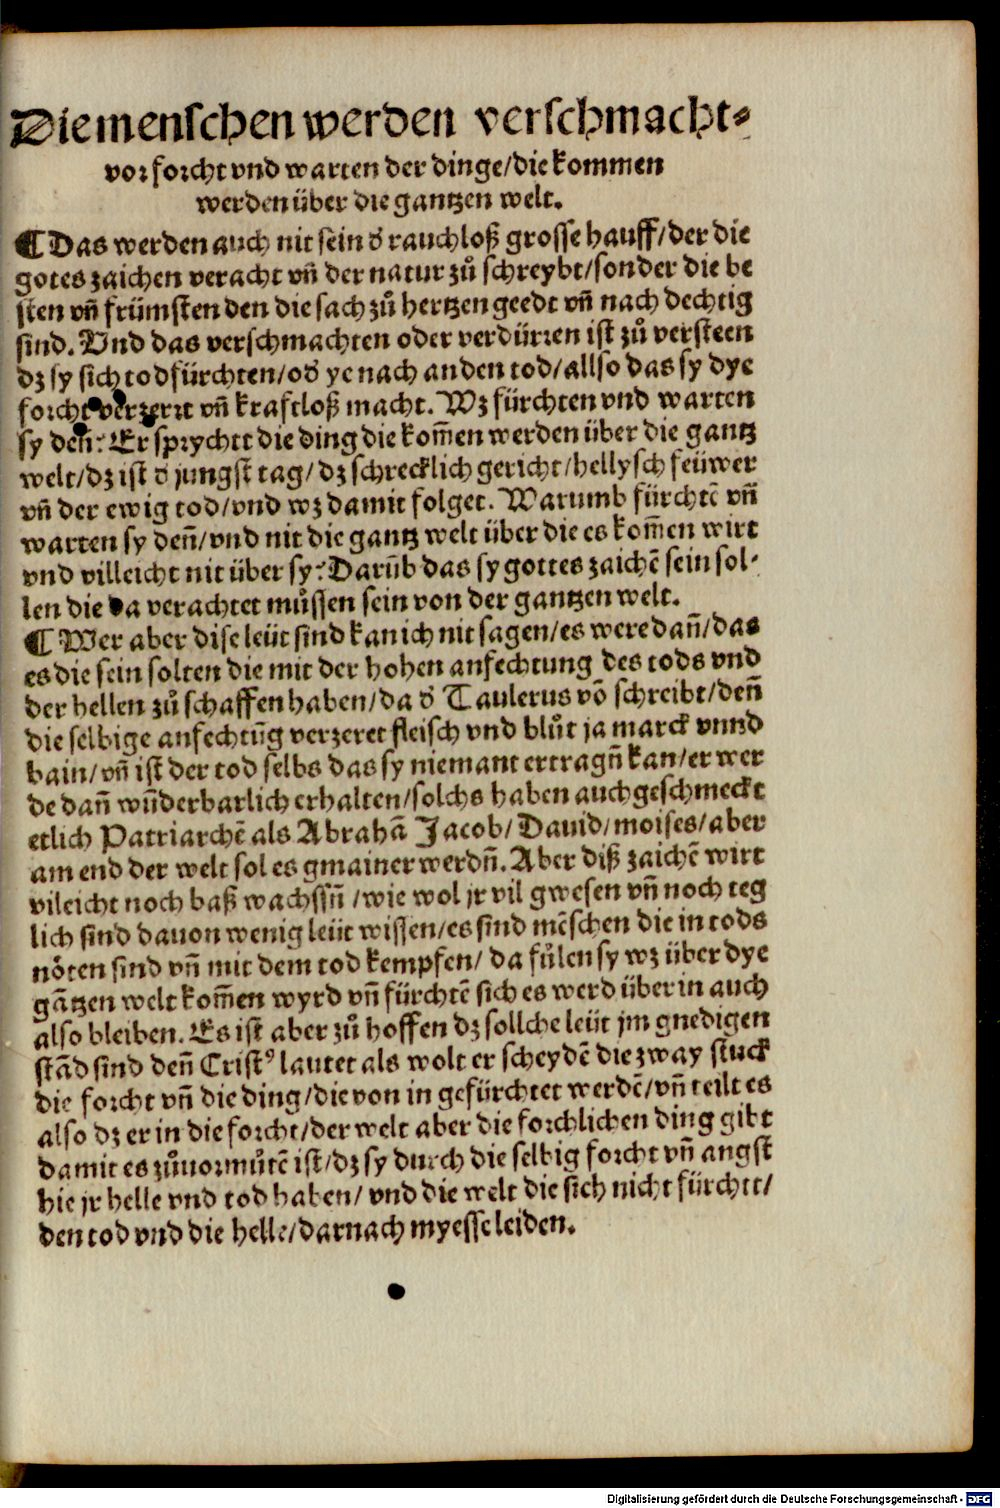 Die menschen werden verschmacht⸗
vor forcht vnd warten der dinge/die kommen
werden über die gantzen welt.
¶ Das werden auch nit sein d̕ rauchloß grosse hauff/der die
gotes zaichen veracht vn̄ der natur zů schreybt/sonder die be
sten vn̄ frümsten den die sach zů hertzen geedt vn̄ nach dechtig
sind. Vnd das verschmachten oder verdürren ist zů versteen
dz sy sich tod fürchten/od̕ ye nach an den tod/allso das sy dye
forcht verzerrt vn̄ krafftloß macht. Wz fürchten vnd warten
sy den̄? Er sprycht die ding die kom̄en werden über die gantz
welt/dz ist d̕ jungst tag/dz schrecklich gericht/hellysch feüwer
vn̄ der ewig tod/vnd wz damit folget. Warumb fürchtē vn̄
warten sy den̄/vnd nit die gantz welt über die es kom̄en wirt
vnd villeicht nit über sy? Darūb das sy gottes zaichē sein sol⸗
len die da verachtet můssen sein von der gantzen welt.
¶ Wer aber dise leüt sind kan ich nit sagen/es were dan̄/das
es die sein solten die mit der hohen anfechtung des tods vnd
der hellen zů schaffen haben/da d̕ Taulerus vō schreibt/den̄
die selbige anfechtūg verzeret fleisch vnd blůt ja marck vnnd
bain/vn̄ ist der tod selbs das sy niemant ertragn̄ kan/er wer
de dan̄ wūderbarlich erhalten/solchs haben auch geschmeckt
etlich Patriarchē als Abrahā Jacob/Dauid/moises/aber
am end der welt sol es gmainer werdn̄. Aber diß zaichē wirt
vileicht noch baß wachssn̄/wie wol jr vil gwesen vn̄ noch teg
lich sind dauon wenig leüt wissen/es sind mēschen die in tods
nöten sind vn̄ mit dem tod kempfen/da fůlen sy wz über dye
gātzen welt kom̄en wyrd vn̄ fürchtē sich es werd über in auch
also bleiben. Es ist aber zů hoffen dz sollche leüt jm gnedigen
stād sind den̄ Cristꝰ lautet als wolt er scheydē die zway stuck
die forcht vn̄ die ding/die von in gefürchtet werdē/vn̄ teilt es
also dz er in die forcht/der welt aber die forchlichen ding gibt
damit es zůuormůtē ist/dz sy durch die selbig forcht vn̄ angst
hie jr helle vnd tod haben/vnd die welt die sich nicht fürchtt/
den tod vnd die helle/darnach myesse leiden.
Digitalisierung gefördert durch die Deutsche Forschungsgemeinschaft - DFG